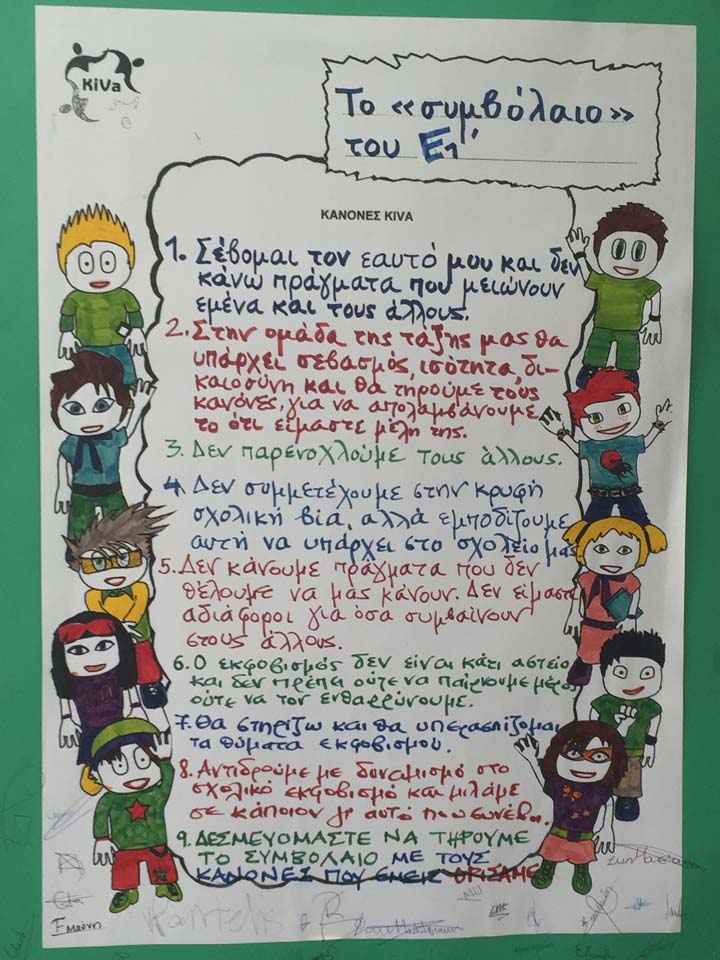 KiVa
Το «συμβόλαιο»
του Ε1'
ΚΑΝΟΝΕΣ KIVA
1. Σέβομαι τον εαυτό μου και δεν
κάνω πράγματα που μειώνουν
εμένα και τους άλλους.
2. Στην ομάδα της τάξης μας θα
υπάρχει σεβασμός, ισότητα, δι-
καιοσύνη και θα τηρούμε τους
κανόνες, για να απολαμβάνουμε
το ότι είμαστε μέλη της.
3. Δεν παρενοχλούμε τους άλλους.
4. Δεν συμμετέχουμε στην κρυφή
σχολική βία, αλλά εμποδίζουμε
αυτή να υπάρχει στο σχολείο μας
5. Δεν κάνουμε πράγματα που δεν
θέλουμε να μας κάνουν. Δεν είμαστε
αδιάφοροι για όσα συμβαίνουν
στους άλλους.
6. Ο εκφοβισμός δεν είναι κάτι αστείο
και δεν πρέπει ούτε να παίρνουμε μέρος
ούτε να τον ενθαρρύνουμε.
7. Θα στηρίζω και θα υπερασπίζομαι
τα θύματα εκφοβισμού.
8. Αντιδρούμε με δυναμισμό στο
σχολικό εκφοβισμό και μιλάμε
σε κάποιον γι' αυτό που συνέβη.
9. ΔΕΣΜΕΥΟΜΑΣΤΕ ΝΑ ΤΗΡΟΥΜΕ
ΤΟ ΣΥΜΒΟΛΑΙΟ ΜΕ ΤΟΥΣ
ΚΑΝΟΝΕΣ ΠΟΥ ΕΜΕΙΣ ΟΡΙΣΑΜΕ